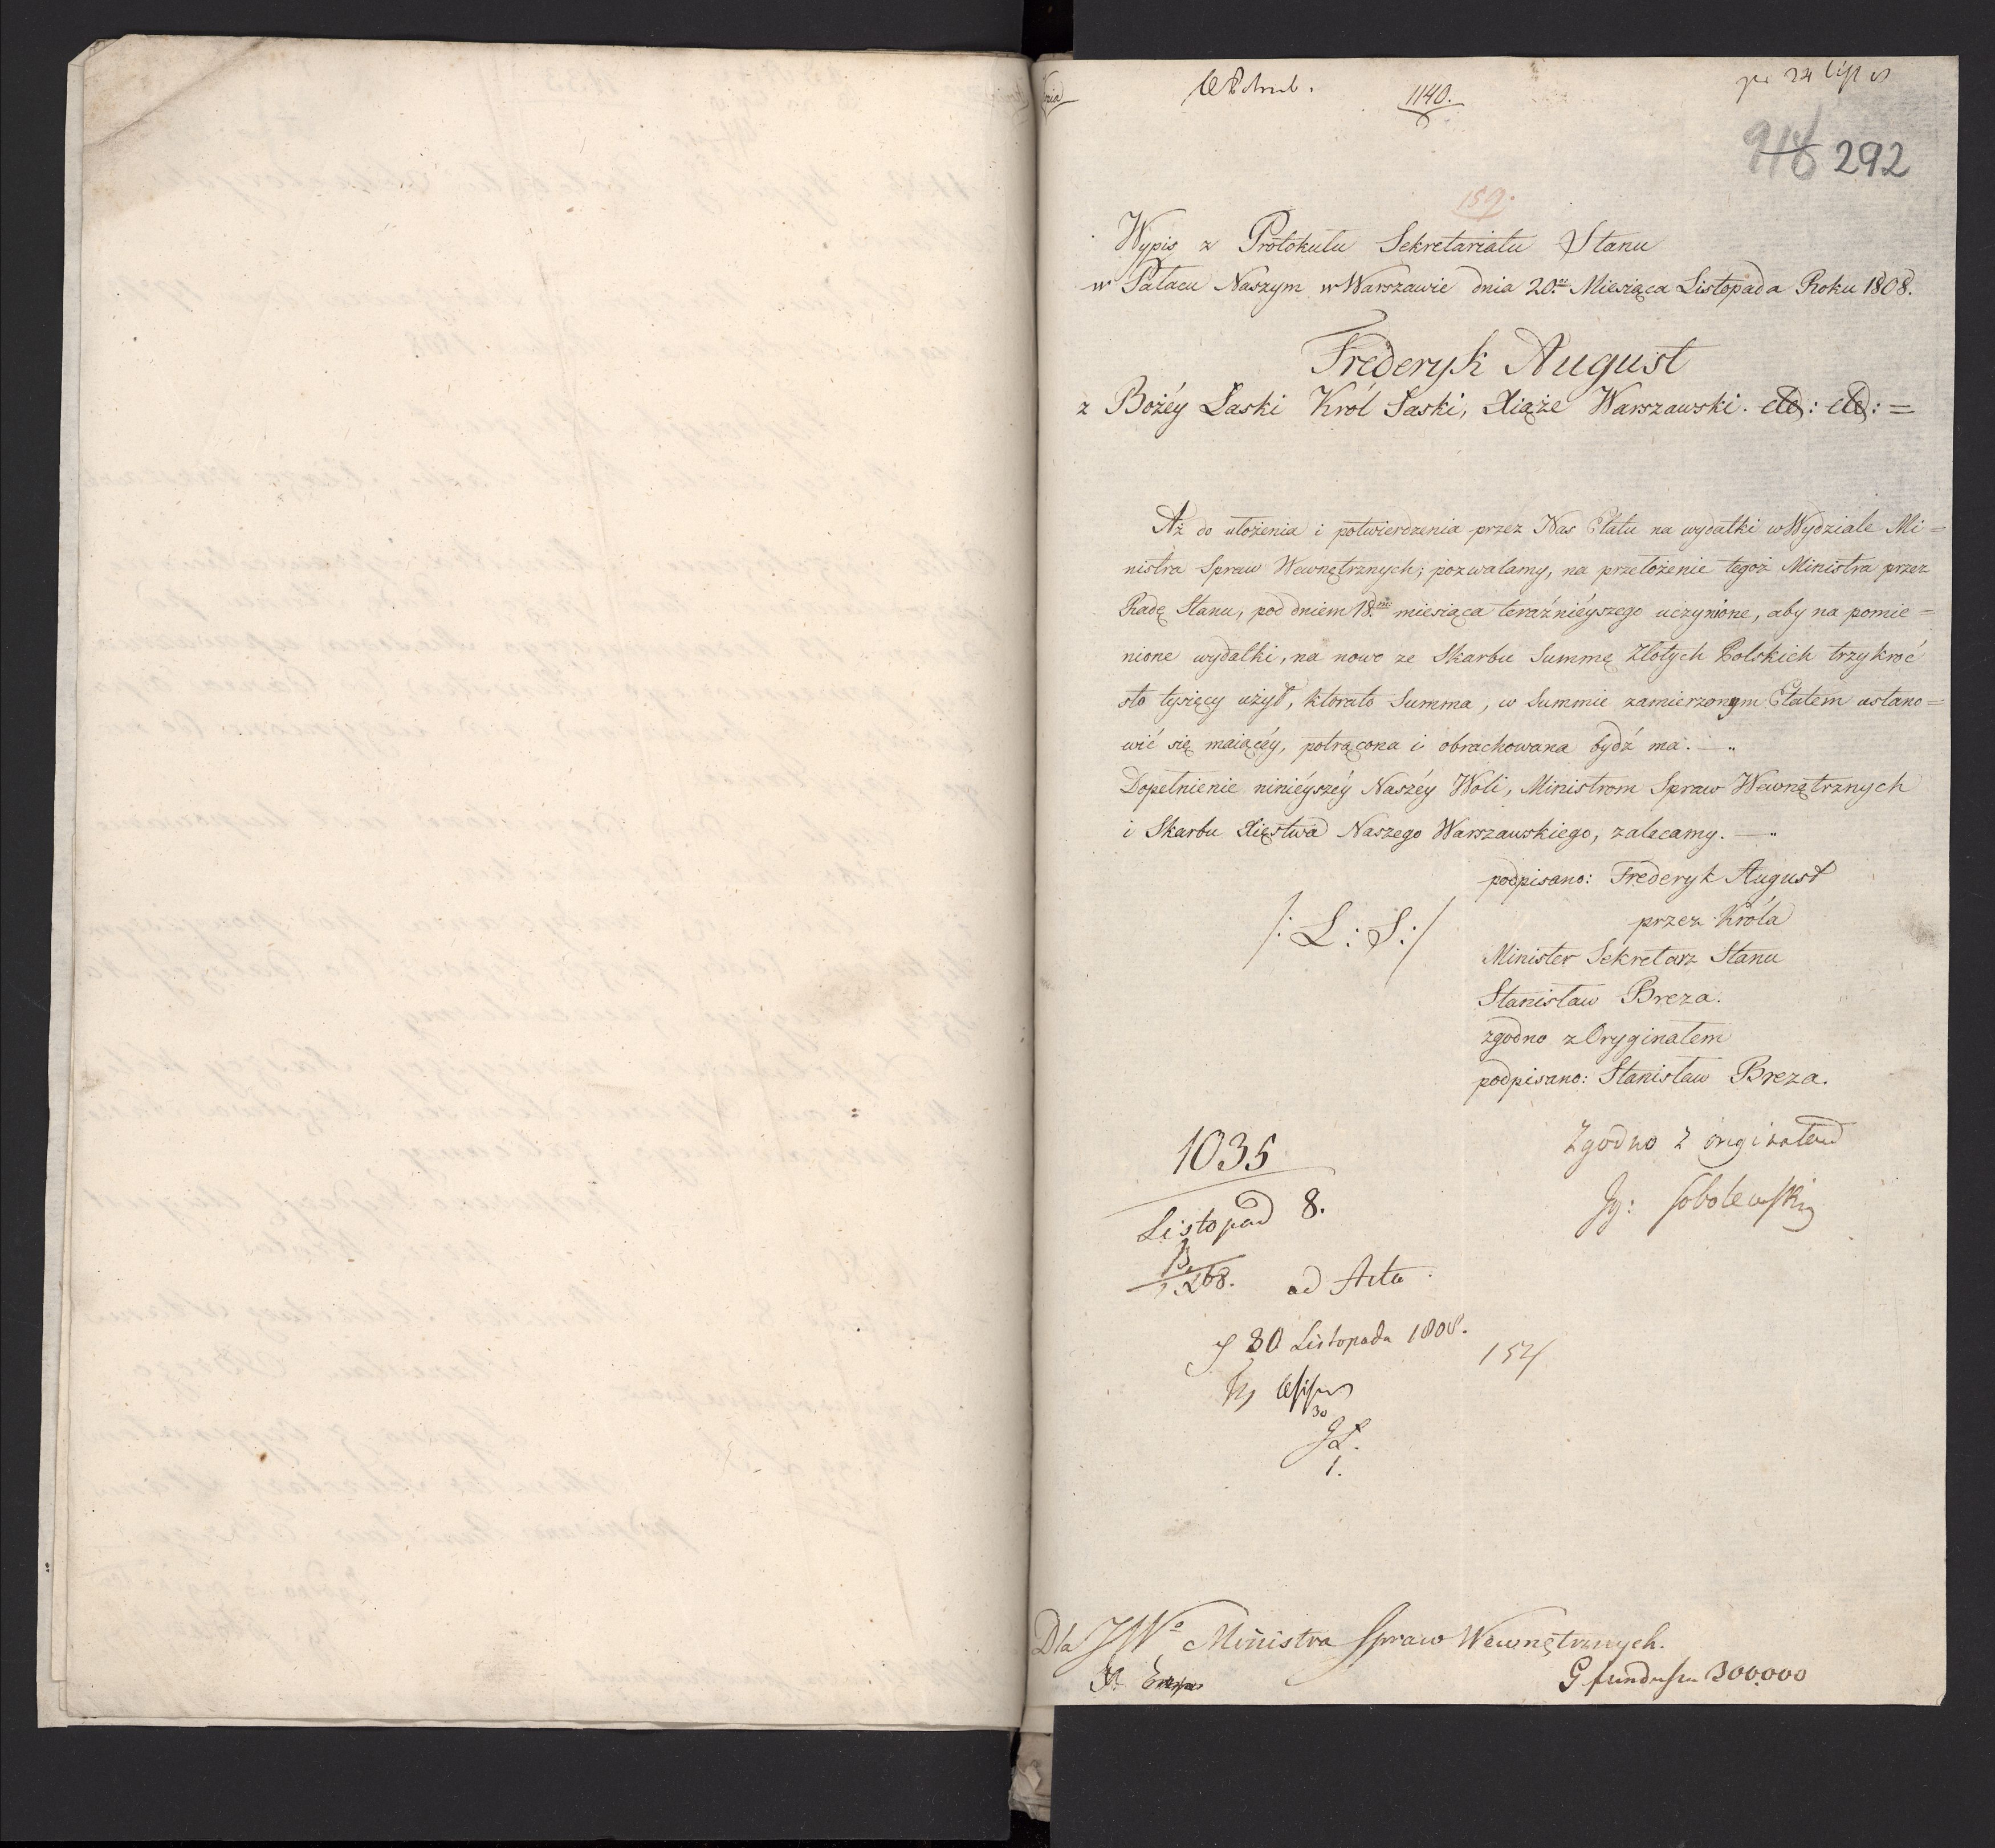 1140.
pr 24
918 292
159.
Wypis z Protokułu Sekretariatu Stanu
w Pałacu Naszym w Warszawie dnia 20.go Miesiąca Listopada Roku 1808.
Frederyk August
z Bożéy Łaski Król Saski, Xiąże Warszawski. etc: etc: =
Aż do ułożenia i potwierdzenia przez Nas Etatu na wydatki w Wydziale Mi=
nistra Spraw Wewnętrznych; pozwalamy, na przełożenie tegoż Ministra przez
Radę Stanu, pod dniem 18.m miesiąca teraźnieyszego uczynione, aby na pomie=
nione wydatki, na nowo ze Skarbu Summę Złotych Polskich trzykroć
sto tysięcy użył, którato Summa, w Summie zamierzonym Etatem ustano=
wić się maiącéy, potrącona i obrachowana bydź ma. —„
Dopełnienie ninieyszéy Naszéy Woli, Ministrom Spraw Wewnętrznych
i Skarbu Xięstwa Naszego Warszawskiego, zalecamy. —„
podpisano: Frederyk August
przez Króla
/: L: S:/
Minister Sekretarz Stanu
Stanisław Breza.
zgodno z Oryginałem
podpisano: Stanisław Breza.
Zgodno z oryginałem
Jg: Sobolewski
1035
Listopad 8.
B
1268. ad Acta
30 Listopada 1808.
154
30
1.
Dla JWo Ministra Spraw Wewnętrznych.
G funduszu 300,000